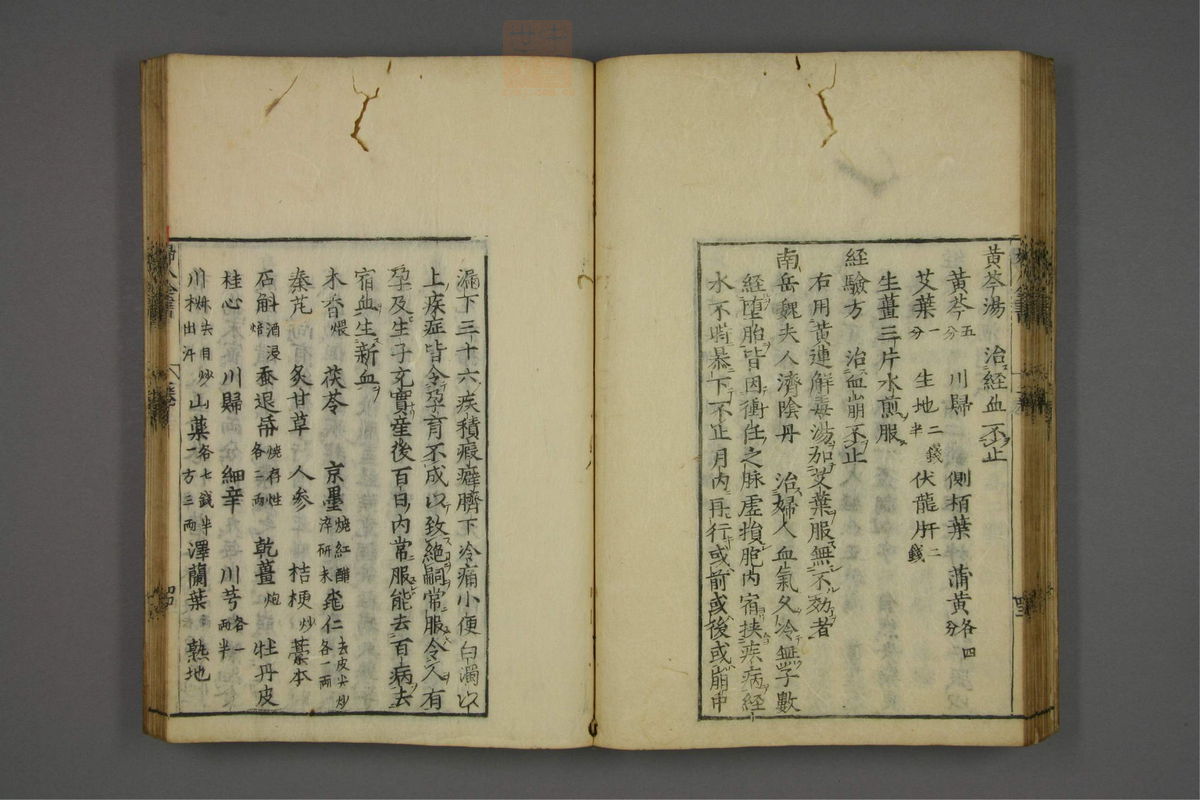 黄芩湯　治経血不止
黄芩五分　川歸　側栢葉　蒲黄各四分
艾葉一分　生地二錢半　伏龍肝二錢
生薑三片水煎服
経驗方　治血崩不止
右用黄連解毒湯加艾葉服無不効者
南岳魏夫人濟陰丹　治婦人血氣久冷無子數
経堕胎皆因衝任之脉虚損胞内宿挟疾病経
水不時暴下不止月内再行或前或後或崩中
漏下三十六疾積瘕癖臍下冷痛小便白濁以
上疾症皆令孕育不成以致絶嗣常服令人有
孕及生子充實産後百日内常服能去百病去
宿血生新血
木香煨　茯苓　京墨燒紅醋淬研末　桃仁去皮尖炒各一兩
秦芃　炙甘草　人参　桔梗炒　藁本
石斛酒浸焙　蚕退帋燒存性各二兩　乾薑炮　牡丹皮
桂心　川歸　細辛　川芎各一兩半
川椒去目炒出汗　山藥各七錢半一方三兩　澤蘭葉　熟地